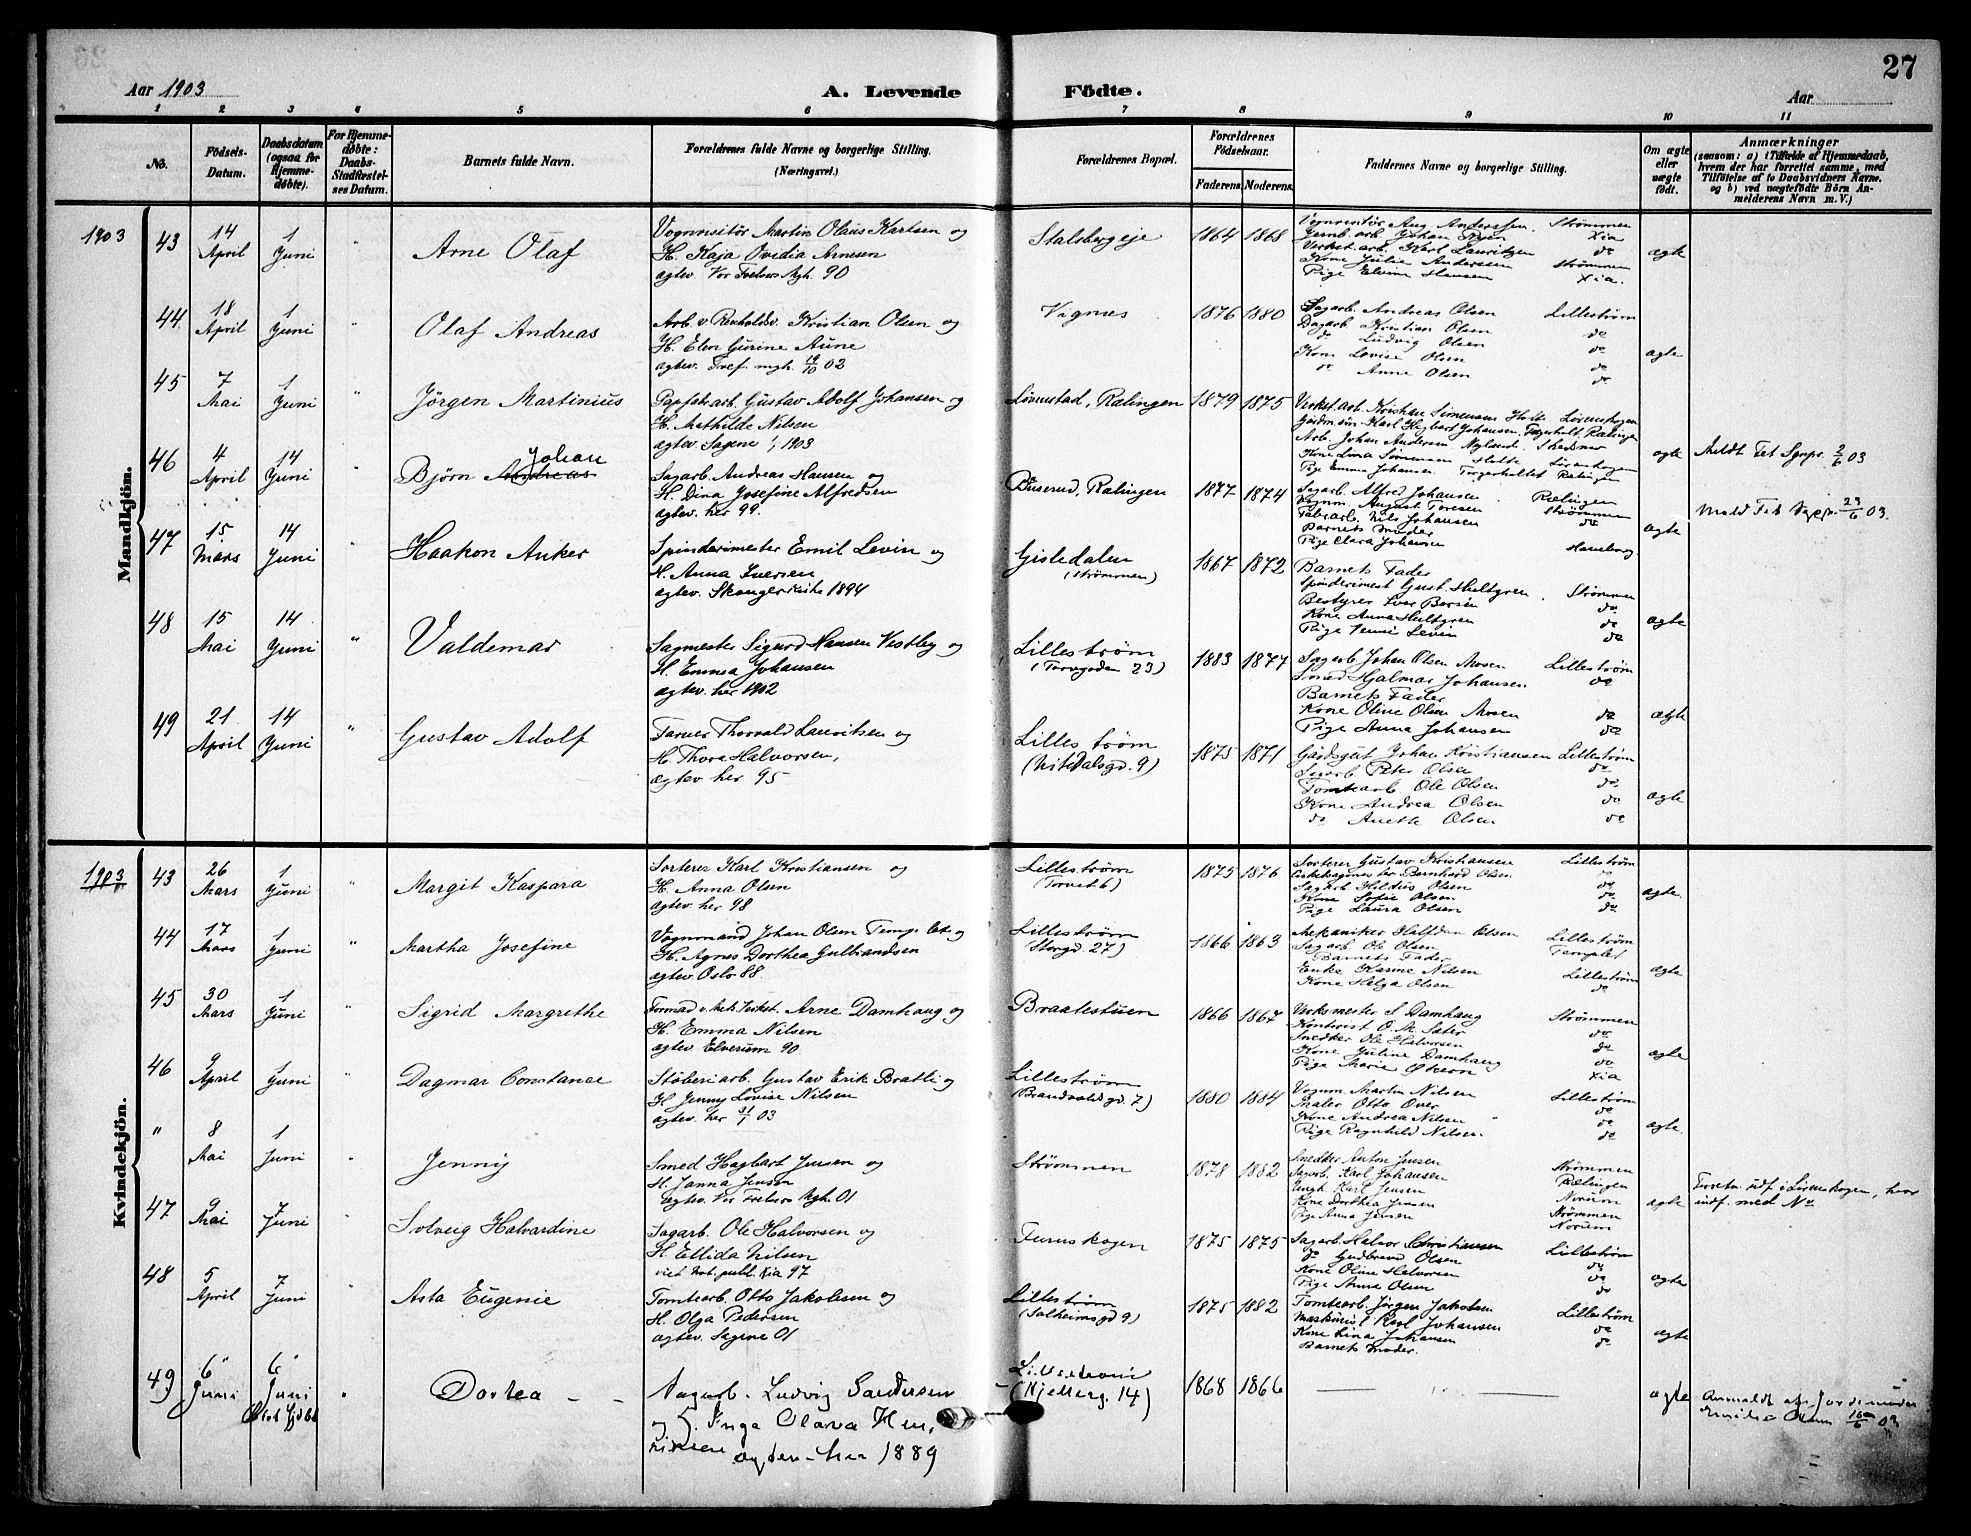 27
Aar 1903
A. Levende Födte.
Aar
1 2 3 4 5 6 7 8 9 10 11
No.
Födsels-Datum.
Daabsdatum (ogsaa for Hjemmedöbte).
For Hjemmedöbte: Daabs-Stadfæstelses Datum.
Barnets fulde Navn.
Forældrenes fulde Navne og borgerlige Stilling. (Næringsvei.)
Forældrenes Bopæl.
Forældrenes Födselsaar.
Faderens. Moderens.
Faddernes Navne og borgerlige Stilling.
Om ægte eller uægte födt.
Anmærkninger
(saasom: a) i Tilfælde af Hjemmedaab, hvem der har forrettet samme, med Tilföielse af to Daabsvidners Navne. og b) ved uægtefödte Börn Anmelderens Navn m. V.)
Mandkjön.
1903 43 14 April 1 Juni " Arne Olaf
Vognvisitör Martin Olaus Karlsen og
H. Kaja Ovidia Arnesen
agtev. Vor Frelsers Mgh. 90
Stalsbergeje 1864 1868
Johan
Verkst. arb. Karl Lauritzen do
Kone Julie Anderssen Strömmen
Pige Hansen Xia.
ægte
44. 18 April 1 Juni " Olaf Andreas
Arb. v Renholdsv. Kristian Olsen og
H. Elen Gurine Aune
agtev. Tref mgh. 19/10 02
Vignes 1876 1880
Sagarb. Andreas Olsen Lilleström
Dagarb Kristian Olsen do
do Ludvig Olsen do
Kone Lovise Olsen do
do Anne Olsen do
ægte
45 7 Mai 1 Juni " Jörgen Martinius
Papfabr. arb. Gustav Adolf Johansen og
H. Mathilde Nilsen
agtev. Sagene 1903
Lövenstad, Rælingen 1879 1875
Verkst. arb. Kristian Simensen Holt Lörenskogen
Arb. Johan Andersen
Pige Emma Johansen Rælingen
ægte Meldt Fet Spgr. 2/6 03
46 4 April 14 Juni " Björn Andreas Johan
Sagarb. Andreas Hansen og
H. Dina Josefine Alfredsen
agtev. her 99.
Buserud, Rælingen 1877 1874
Sagarb. Alfred Johansen Rælingen
Vognm August Toresen Strömmen
Fabr. arb. Nils Johansen do
Barnets Moder
Pige Clara Johansen
ægte Meld Fet Spgr. 23/6 03.
47 15 Mars 14 Juni " Haakon Anker
Spinderimester Emil Levin og
H. Anna Iversen
agtev. Skanger Kirke 1894
Gisledalen (Strömmen) 1867 1872
Barnets Fader
Spinderimest. Gust. Hultgren. Strömmen
Bestyrer Iver Borsén do
Kone Anna Hultgren do
Pige Jenni Levin do
ægte
48 15 Mai 14. Juni " Valdemar
Sagmester Sigurd Hansen Vestby og
H. Emma Johansen
agtev. her 1902
Lilleström (Torvgaden 23) 1883 1877
Sagarb. Johan Olsen Mosen Lilleström
Smed Hjalmar Johansen do
Barnets Fader
Kone Oline Olsen Mosen do
Pige Anna Johansen do
ægte
49 21 April 14 Juni " Gustav Adolf
Farver Thorvald Lauritsen og
H. Thora Halvorsen,
agtev her 95
Lilleström (Nitedalsgd. 9) 1875 1871
Gårdsgut Johan Kristiansen Lilleström
Sagarb Peter Olsen do
Tomtearb. Ole Olsen do.
Kone Andrea Olsen do
do Anette Olsen do
ægte
Kvindekjön.
1903 43 26 Mars 1 Juni " Margit Kaspara
Sorterer Karl Kristiansen og
H. Anna Olsen
agtev. her 98
Lilleström (Torvet 6) 1875 1876
Sorterer Gustav Kristiansen Lilleström
Bernhard Olsen. do
Sagarb Hildus Olsen do
Kone Sofie Olsen do
Pige Laura Olsen do
ægte.
44 17 Mars 1 Juni " Martha Josefine
Vognmand Johan Olsen Templet og
H. Agnes Dorthea Gulbrandsen
agtev. Oslo 88.
Lilleström (Storgd. 27) 1866 1863
Mekaniker Halfdan Olsen Lilleström
Sagarb Ole Olsen Templet
Barnets Fader
Enke Karine Nilsen Lilleström
Kone Helga Olsen do
ægte
45 30 Mars 1 Juni " Sigrid Margrethe
Formand v. Mek. Verkst. Arne Damhaug og
H. Emma Nilsen
agtev. Elverum 90
Braatestuen 1866 1867
Verksmester S Damhaug Strömmen
Kontorist O. M. Sæter do
Snedker Ole Halvorsen do
Kone Juline Damhaug do
Pige Marie Xia
ægte
46 9 April 1 Juni " Dagmar Constance
Stöberiarb. Gustav Erik Bratli og
H Jenny Lovise Nilsen
agtev. her 31/1 03
Lilleström Brandvoldsgd 7) 1880 1884
Vognm. Martin Nilsen Lilleström
Maler Otto Over do
Kone Andrea Nilsen do
Pige Ragnhild Nilsen. do
ægte.
" 8 Mai 1 Juni " Jenny
Smed Hagbart Jensen og
H. Janna Jensen
agtev. Vor Frelsers Mgh. 01
Strömmen 1878 1882
Snedker Anton Jensen Strömmen
Sagarb. Karl Johansen Rælingen
Ungk Karl Jensen Norum
Kone Dorthea Jensen Strömmen
Pige Anna Jensen Norum
ægte indf. i Lörenskogen, hvor indf. med No
47 9 Mai 7 Juni " Solveig Halvardine
Sagarb. Ole Halvorsen og
H. Ellida Nilsen
viet Not. publ. Xia 97
Furuskogen 1875 1875
Sagarb. Halvor Christiansen Lilleström
do Gudbrand Olsen do
Kone Oline Halvorsen do
Pige Anna Olsen do
ægte
48 5 April 7 Juni " Asta Eugenie
Tomtearb. Otto Jakobsen og
H. Olga Pedersen
agtev. Sagene 01
Lilleström (Solheimsgd 9) 1875 1882
Tomtearb. Jörgen Jakobsen Lilleström
Maskinist Karl Johansen do
Kone Lina Johansen do
Barnets Moder.
ægte
49 6 Juni 6 Juni " Dortea
Sagarb. Ludvig Sandersen
og H. Inga Olava Hen-
riksen agtev. her 1889
Lilleström (Kjellerg. 14) 1868 1866
ægte Anmeldt af Jordemoder Olsen 16/6 03